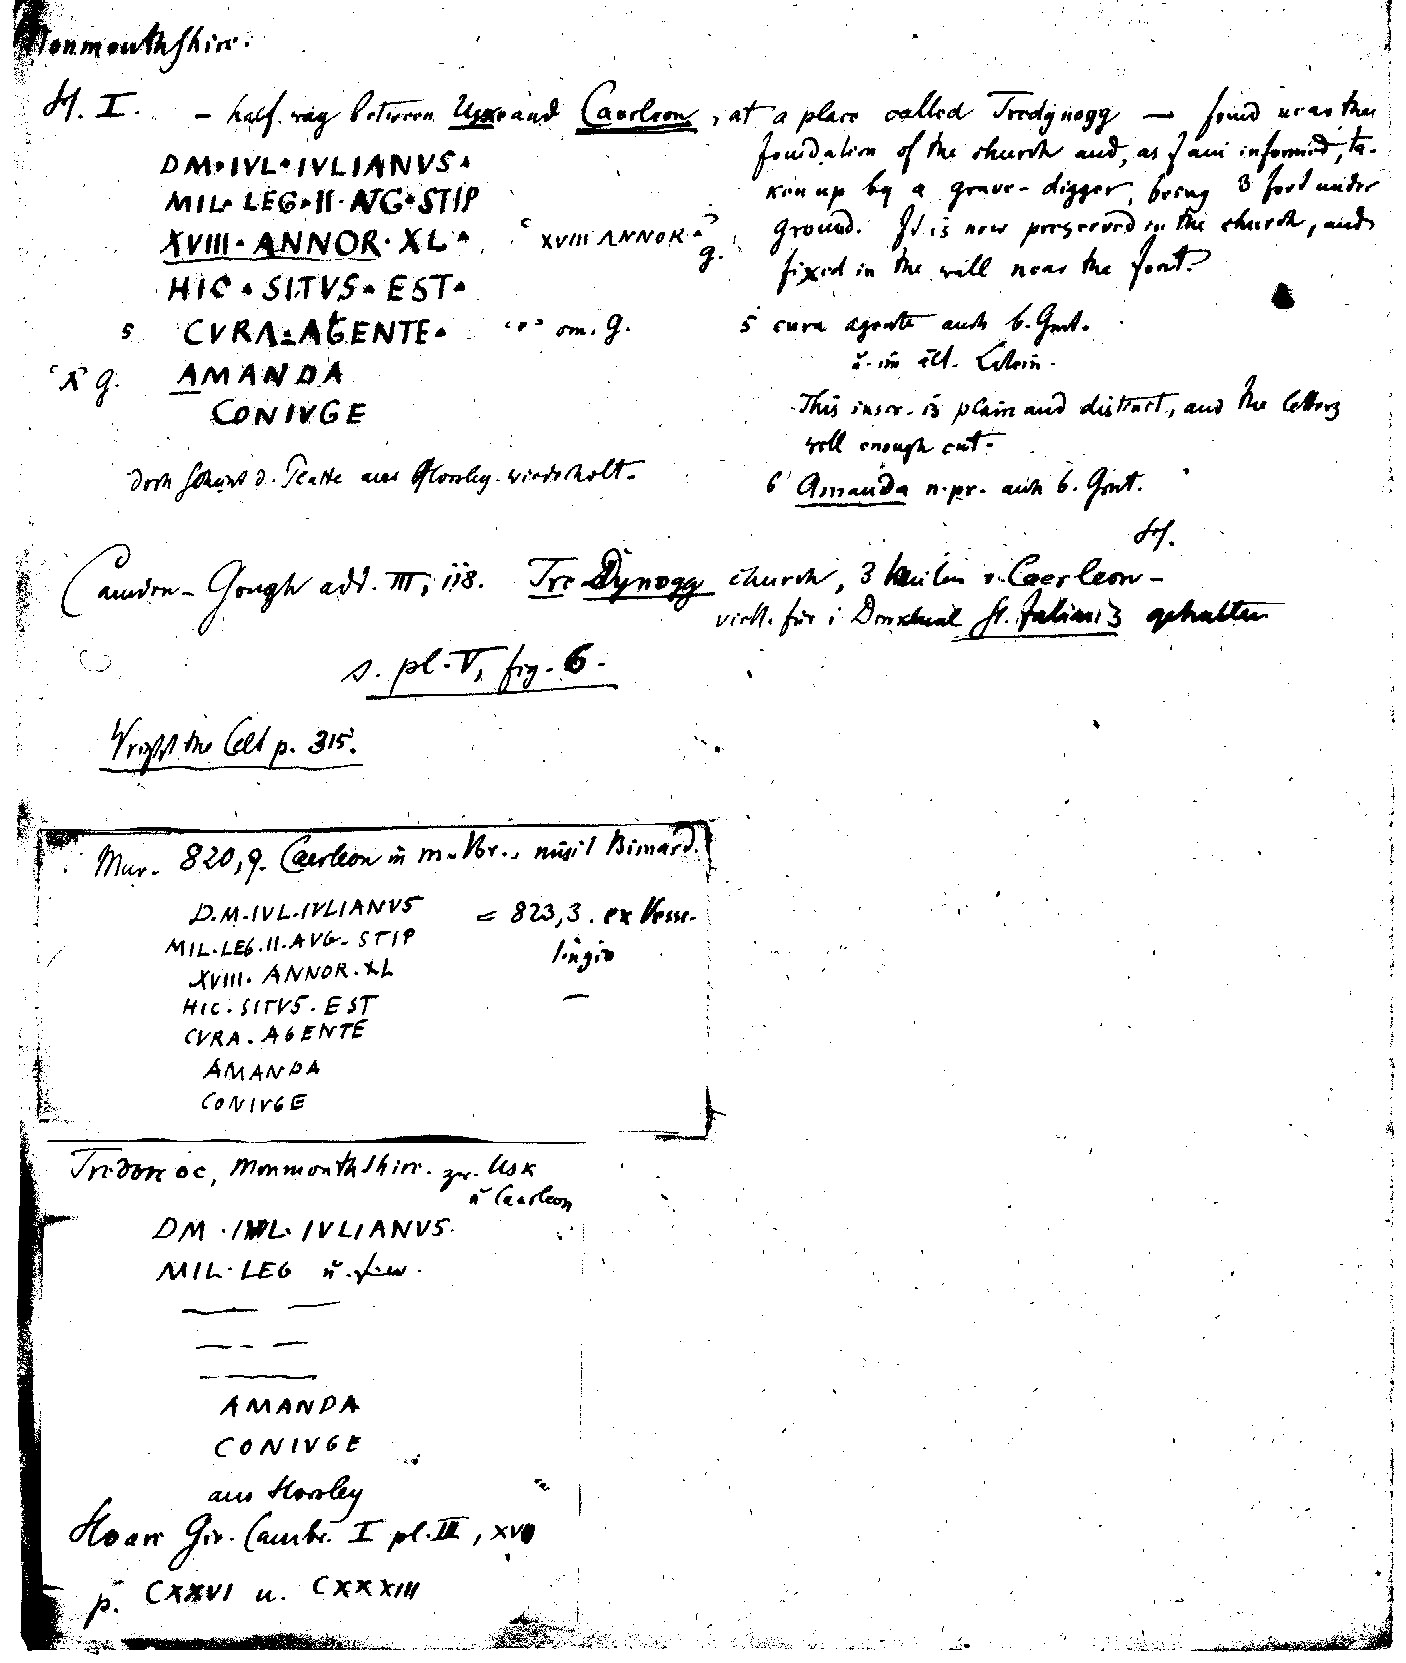 Monmouthshire.
H. I. – half way between Usk and Caerleon, at a place called Tredynogg — found near the
foundation of the church and, as I am informed, ta-
ken up by a grave-digger, being 3 foot under
ground. It is now preserved in the church, and
fixed in the wall near the font.
DM·IVL·IVLIANVS·
MIL·LEG·II·AVG·STIP
XVIII·ANNOR·XL· XVIII ANNOR· g.
HIC·SITVS·EST·
5 CVRA·AGENTE· om. g.
g. AMANDA
CONIVGE
5 cura agente auch b. Grut.
This inscr. is plain and distinct, and the letters
well enough cut.
6 Amanda n.pr. auch b. Grut.
H.
doch d. Platte aus Horsley wiederholt.
Camden-Gough add. III, 118. Tre Dynogg church, 3 Meilen v. Caerleon –
für Denkmal St. Julian's gehalten
s. pl. V, fig. 6.
Wright the Celt p. 315.
Mur. 820,9. Caerleon misit Bimard.
D.M.IVL.IVLIANVS = 823,3. ex Wesse-
lingio
MIL.LEG.II.AVG.STIP
XVIII.ANNOR.XL
HIC.SITVS.EST
CVRA.AGENTE
AMANDA
CONIVGE
Monmouthshire. zw. Usk
u Caerleon
DM·IVL·IVLIANVS·
MIL·LEG
AMANDA
CONIVGE
aus Horsley
Hoare Gir. Cambr. I pl. III, XV
p. CXXVI u. CXXXIII